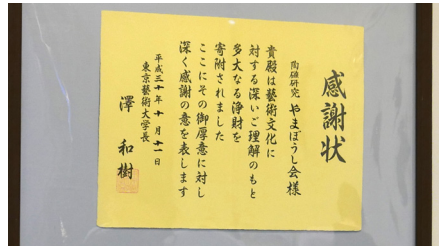 感謝状
陶磁研究 やまぼうし会様
貴殿は藝術文化に
対する深いご理解のもと
多大なる浄財を
寄附されました
ここにその御厚意に対し
深く感謝の意を表します
平成三十年十月十一日
東京藝術大学長
澤 和樹